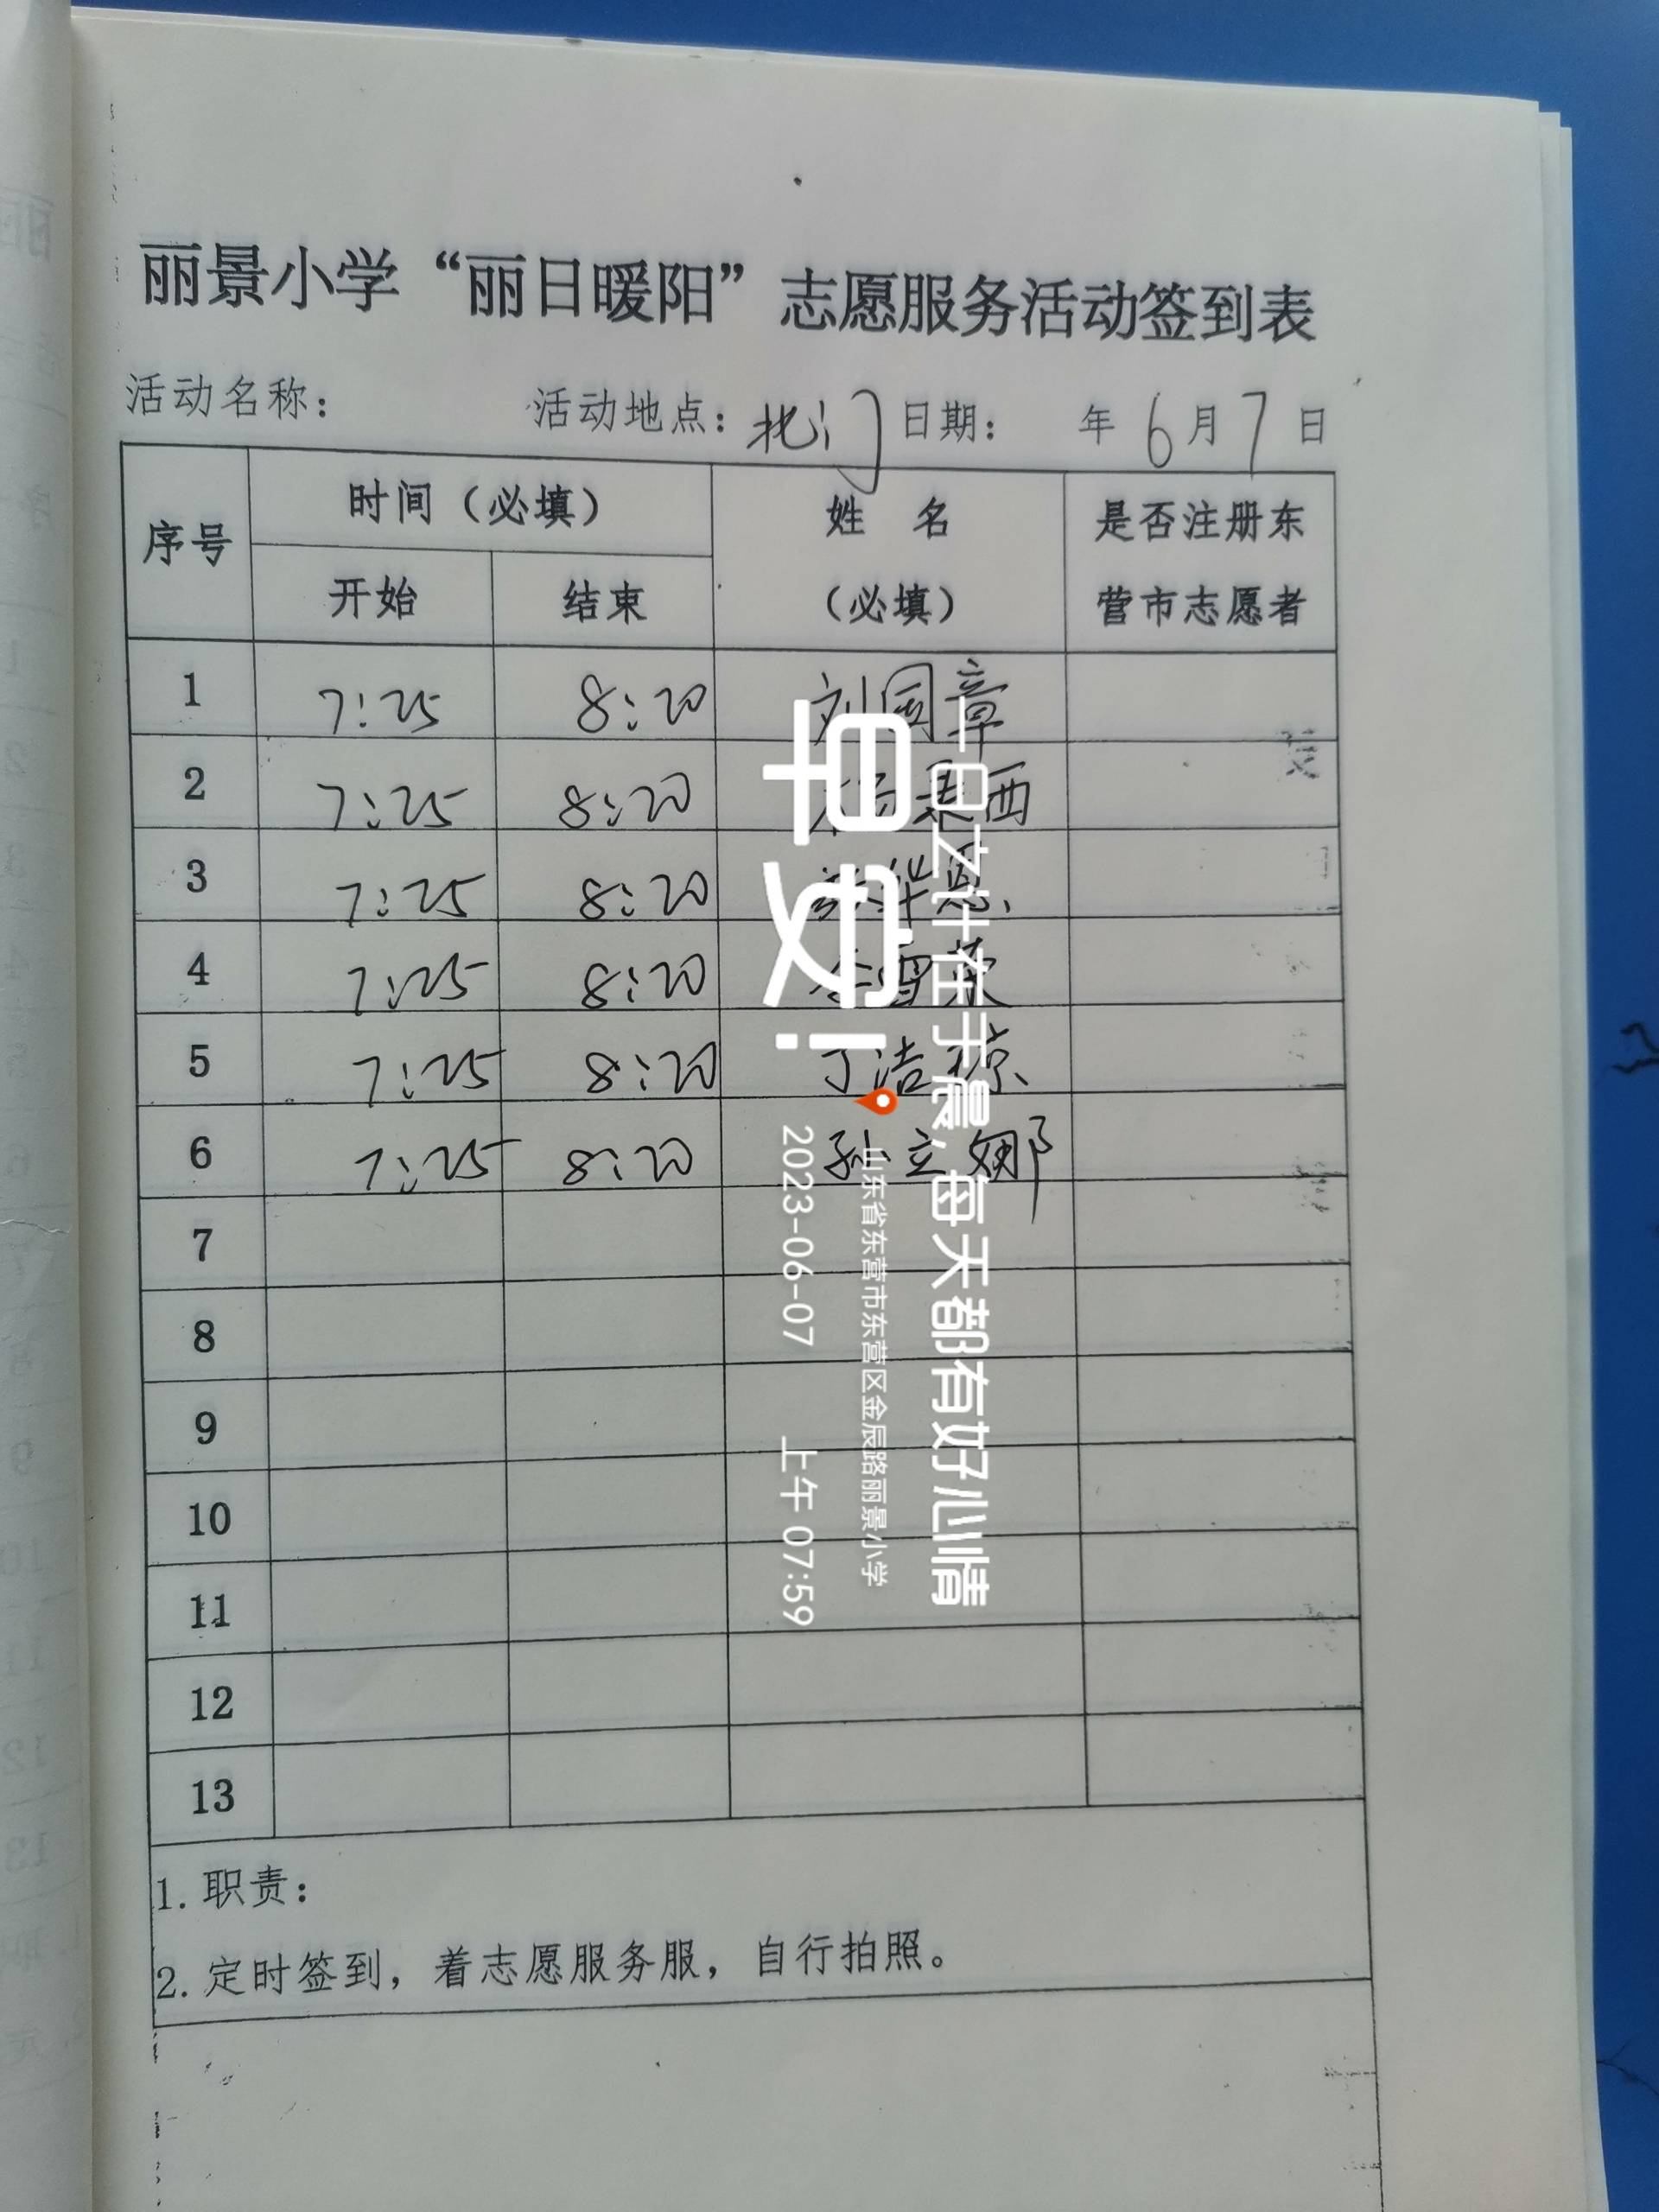 丽景小学“丽日暖阳”志愿服务活动签到表
活动名称： 活动地点：北门 日期： 年6月7日
序号 时间（必填） 姓 名（必填） 是否注册东营市志愿者
开始 结束
1 7:25 8:20 刘国章
2 7:25 8:20
3 7:25 8:20
4 7:25 8:20
5 7:25 8:20 丁洁琼
6 7:25 8:20 孙立娜
7
8
9
10
11
12
13
1.职责：
2.定时签到，着志愿服务服，自行拍照。
一日之计在于晨，每天都有好心情
早安！
山东省东营市东营区金辰路丽景小学
2023-06-07 上午 07:59